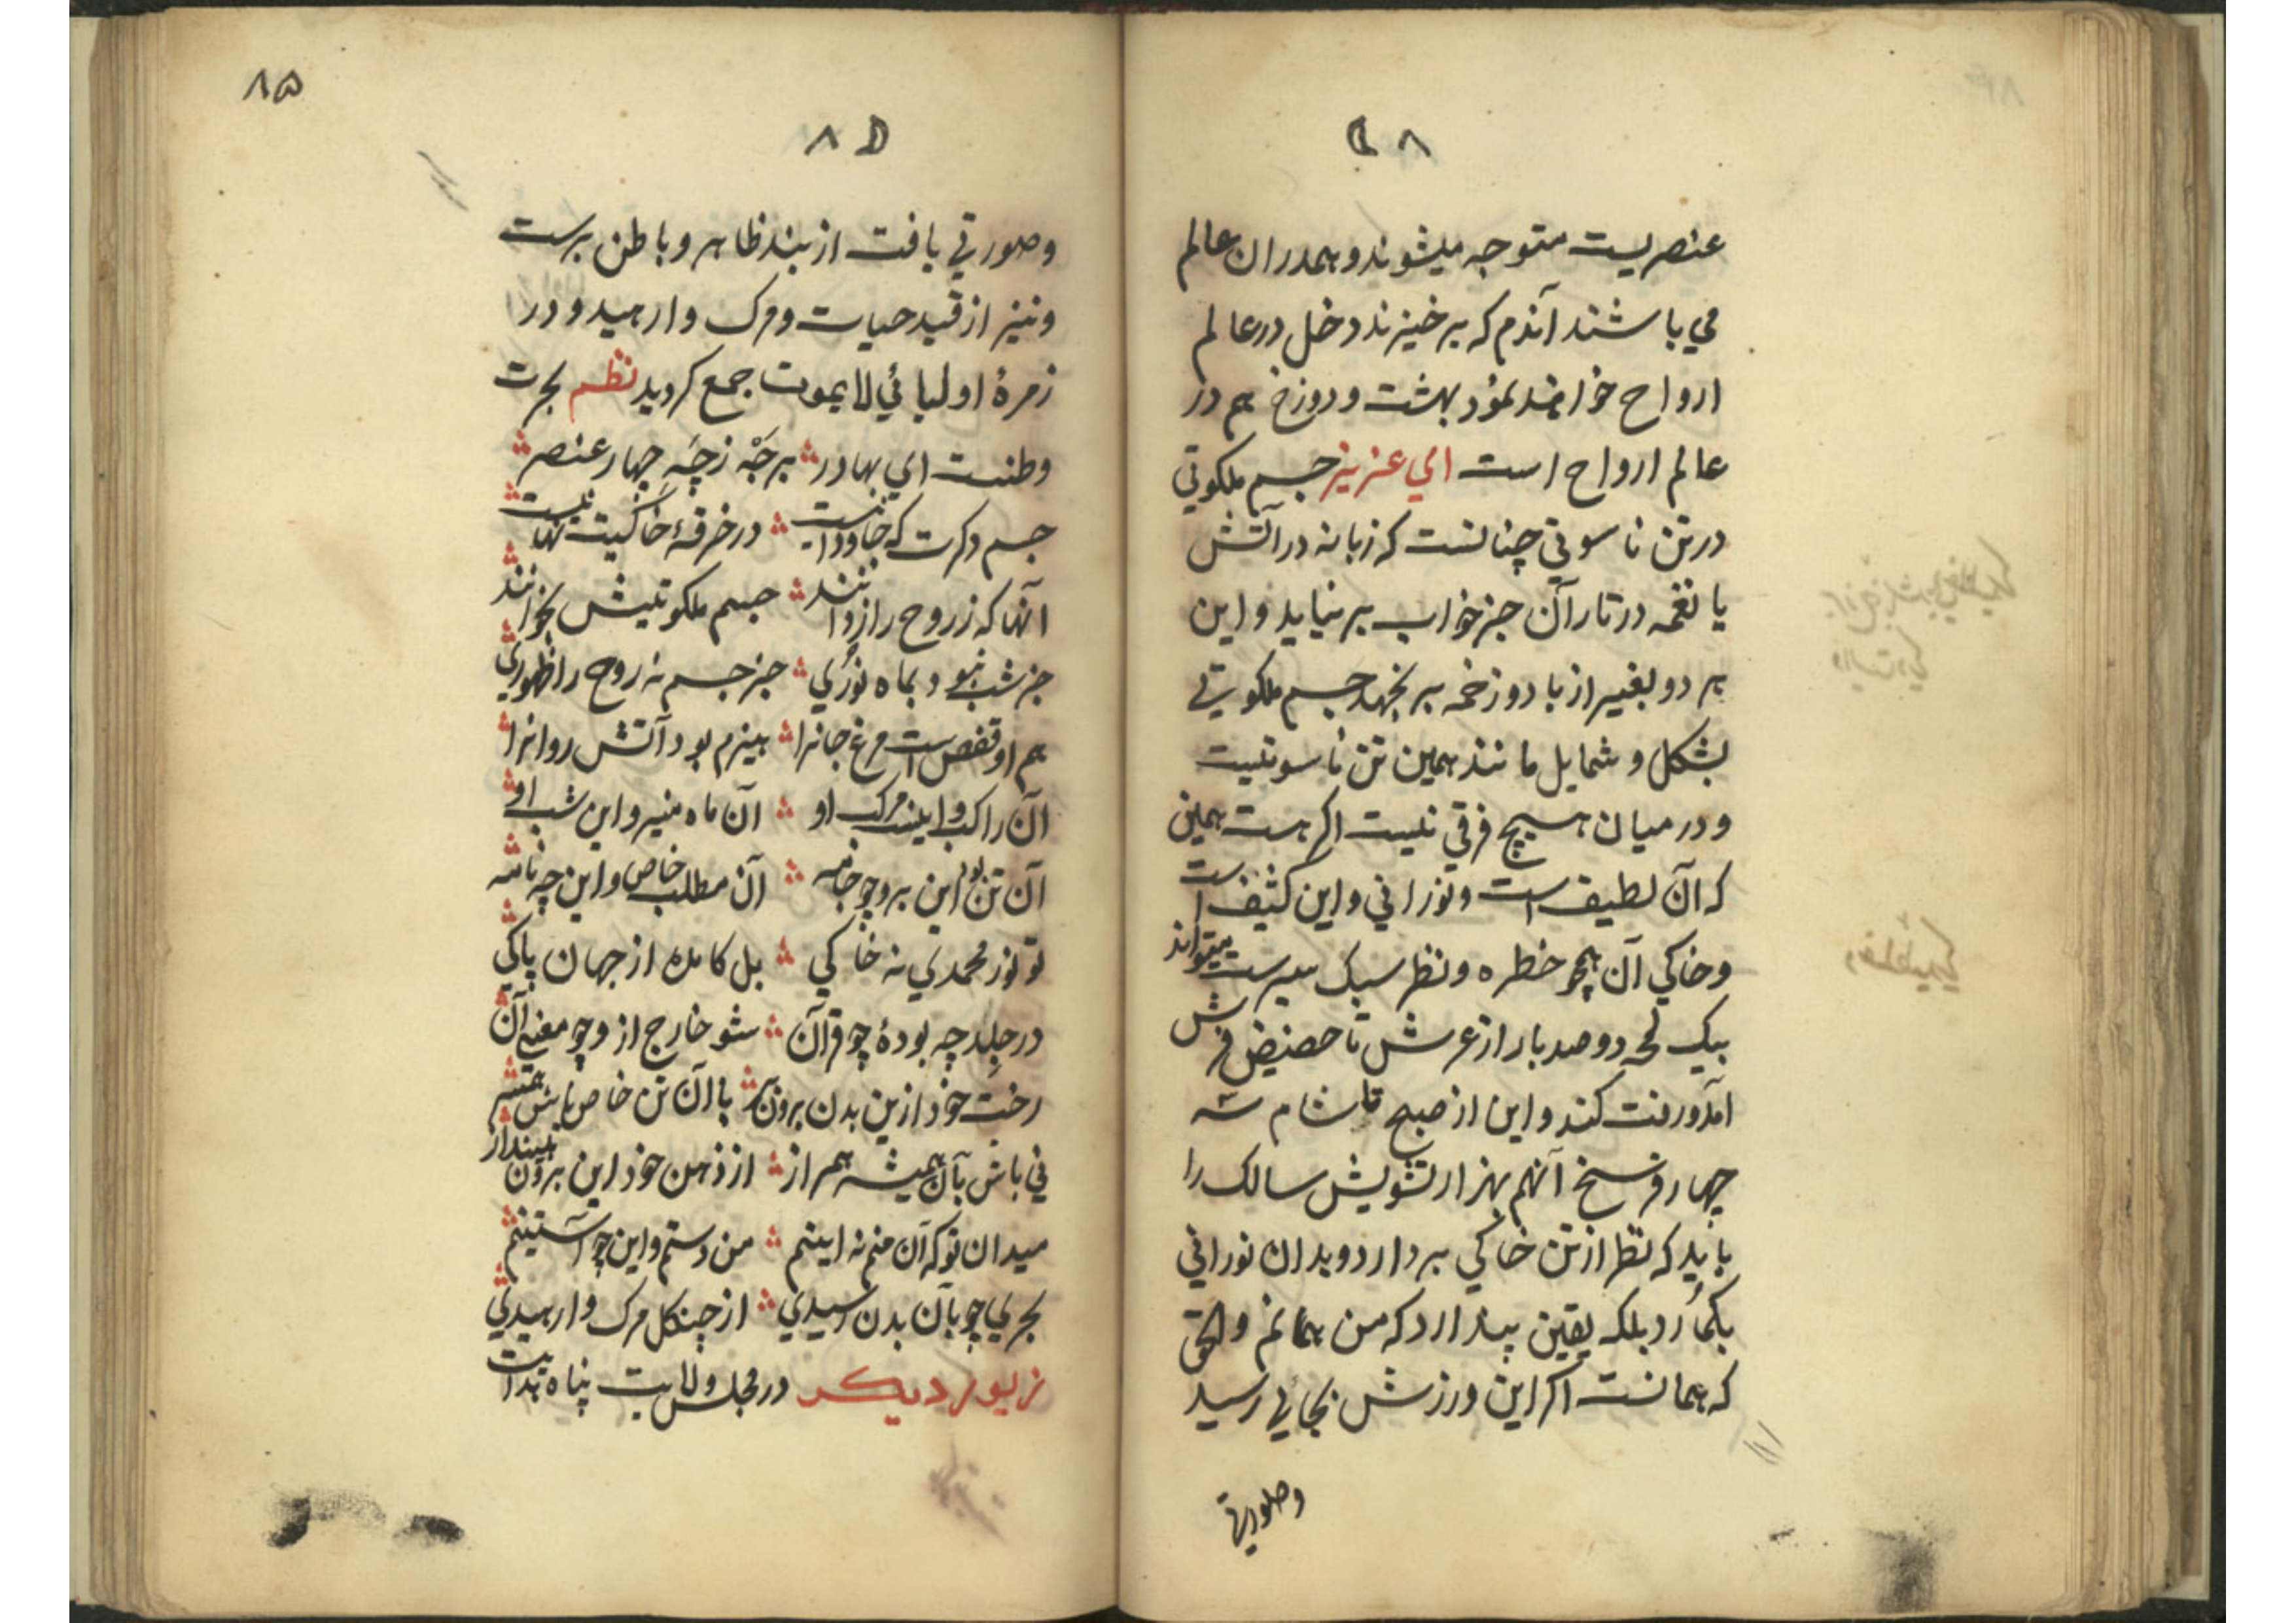 ۸۴
عنصریست متوجه میشوند و همدران عالم
می باشند آندم که برخیزند دخل در عالم
ارواح خواهند نمود بهشت و دوزخ هم در
عالم ارواح است ای عزیز جسم ملکوتی
در تن ناسوتی چنانست که زبانه در آتش
یا نغمه در تار آن جز خواب بر نیاید و این
هر دو بغیر از باد و زخمه بر نجهد جسم ملکوتی
بشکل و شمایل مانند همین تن ناسوتیست
و درمیان هیچ فرقی نیست اکر هست همین
که آن لطیف است و نورانی و این کثیف است
و خاکی آن همچو خطره و نظر سبک سیرست میتواند
بیک لمحه دو صد بار از عرش تا حضیض فرش
آمد و رفت کند و این از صبح تا شام سه
چهار فرسخ آنهم بهزار تشویش سالک را
باید که نظر از تن خاکی بردارد و بدان نورانی
بکمارد بلکه یقین پندارد که من همانم و الحق
که همانست اکر این ورزش بجائی رسید
وصورتی
۸۵
۸۵
وصورتی یافت از بند ظاهر و باطن برست
و نیز از قید حیات و مرک وارهید و در
زمرهٔ اولیائی لایموت جمع کردید نظم بجرت
وطنست ای بهادر برجَه زچَه چهار عنصر
جسم دکرت که جاودانست در خرقهٔ خاکیت نهانست
آنها که ز روح راز دانند جسم ملکوتیش بخوانند
جز شب نبود بماه نوری جز جسم نه روح را ظهوری
هم او قفص است مرغ جانرا هیزم بود آتش روانرا
آن راکب و اینست مرکب او آن ماه منیر و این شب او
آن تن بود این برو چو جامه آن مطلب خاص و این چه نامه
تو نور محمدی نه خاکی بل کامده از جهان پاکی
در جلد چه بودهٔ چو قرآن شو خارج ازو چو معنی آن
رخت خود ازین بدن برون کش با آن تن خاص باش
نی باش بآن همیشه همراز از ذهن خود این برون بینداز
میدان تو که آن منم نه اینم من دستم و این چو آستینم
بجری چو بآن بدن رسیدی از چنکل مرک وارهیدی
زیور دیکر در مجلس ولایت پناه هدایت